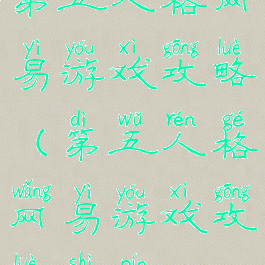 第五人格网
yì yóu xì gōng luè
易游戏攻略
dì wǔ rén gé
（第五人格
wǎng yì yóu xì gōng
网易游戏攻
luè shì pín